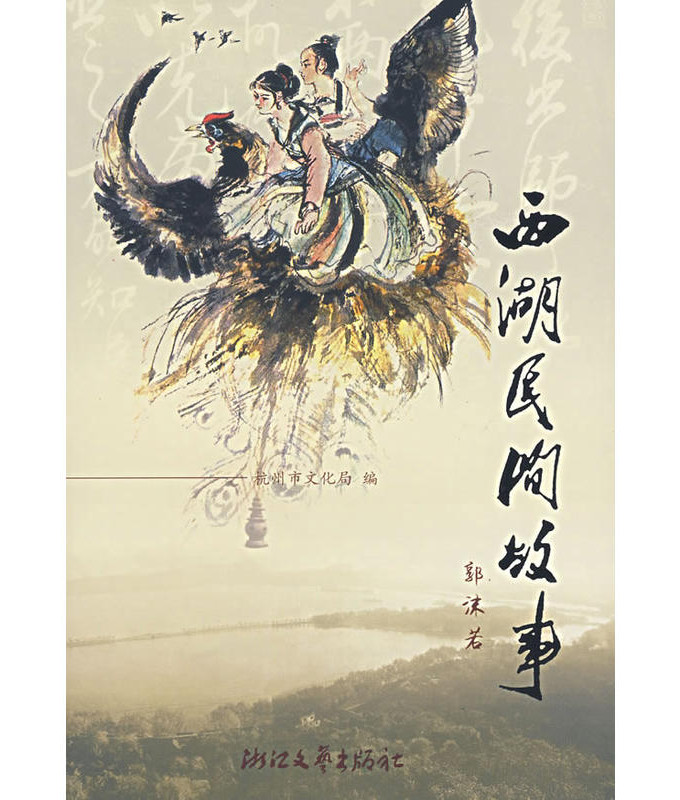 西湖民间故事
郭沫若
杭州市文化局 编
浙江文艺出版社